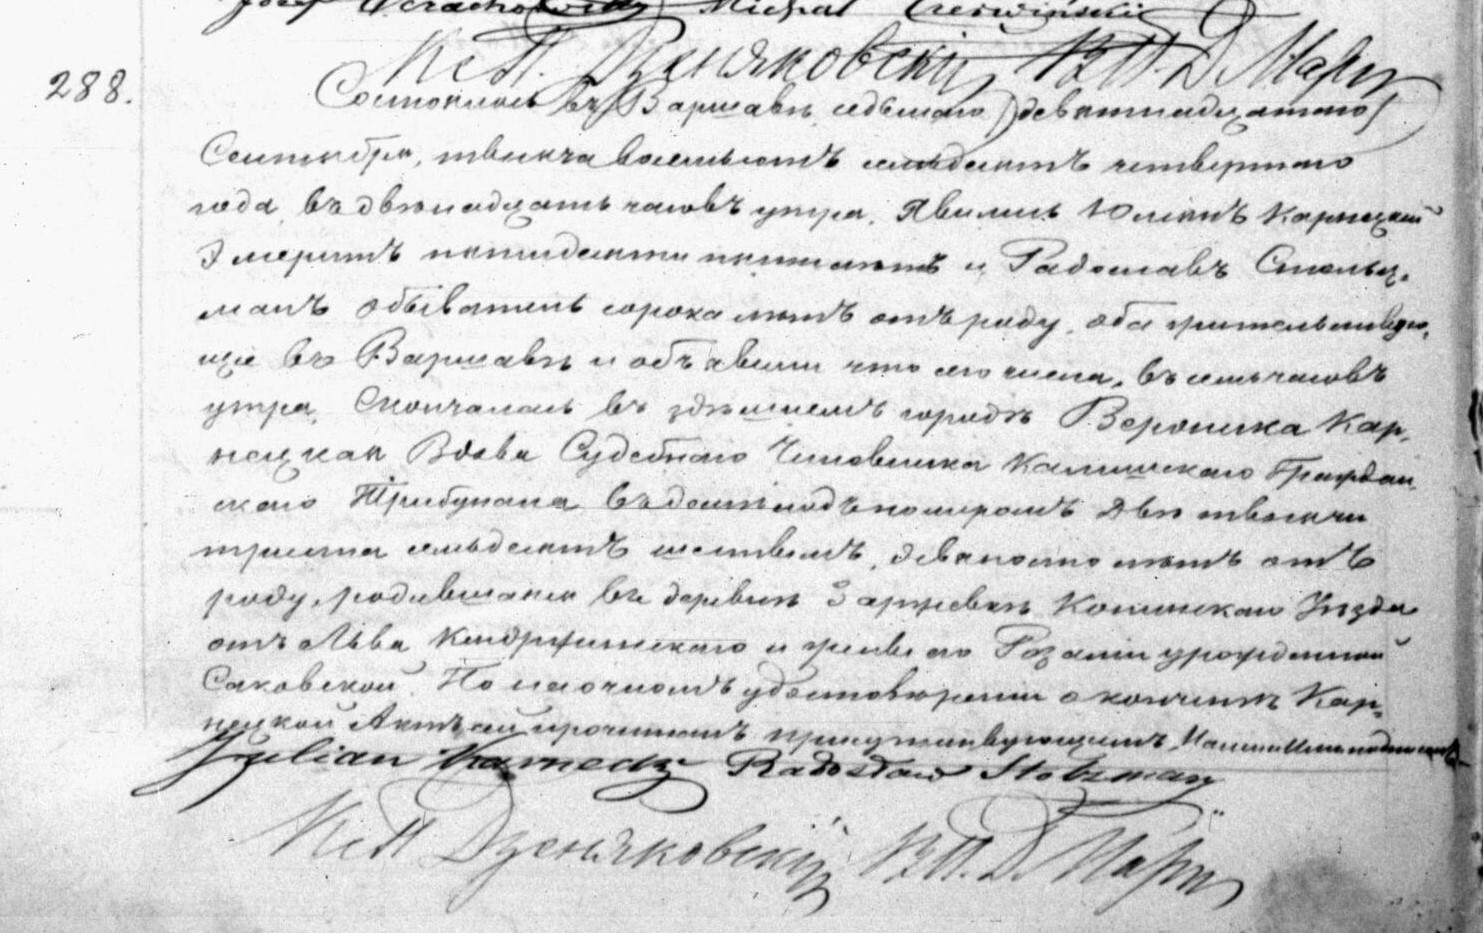 Michał Czerwiński
Кс П. Дзеняковскій В.П.Д. Мары
288.
Состоялось въ Варшавѣ седьмаго /девятнадцатаго/
Сентября, тысяча восемьсотъ семьдесятъ четвертаго
года, въ двѣнадцать часовъ утра. Явились Юліанъ Карнецкій
Эмеритъ пятидесяти пяти лѣтъ и Радославъ Стольц-
манъ Обыватель сорока лѣтъ отъ роду, оба жительствую-
щіе въ Варшавѣ и объявили что сего числа, въ семь часовъ
утра, Скончалась въ здѣшнемъ городѣ Вероника Кар-
нецкая Вдова Судебнаго Чиновника Калишскаго Граждан-
скаго Трибунала въ домѣ подъ номеромъ Двѣ тысячи
триста семьдесятъ шестымъ, девяносто лѣтъ отъ
роду, родившаяся въ деревнѣ Заржевѣ Конинскаго Уѣзда
отъ Льва Кендржинскаго и жены его Розаліи урожденной
Саковской. По наочномъ удостовѣреніи о кончинѣ Кар-
нецкой Актъ сей прочитанъ присутствующимъ, Нами и Ими подписанъ
Julian Karnecki Radosław Stolzman
Кс П Дзеняковскій В.П.Д. Мары